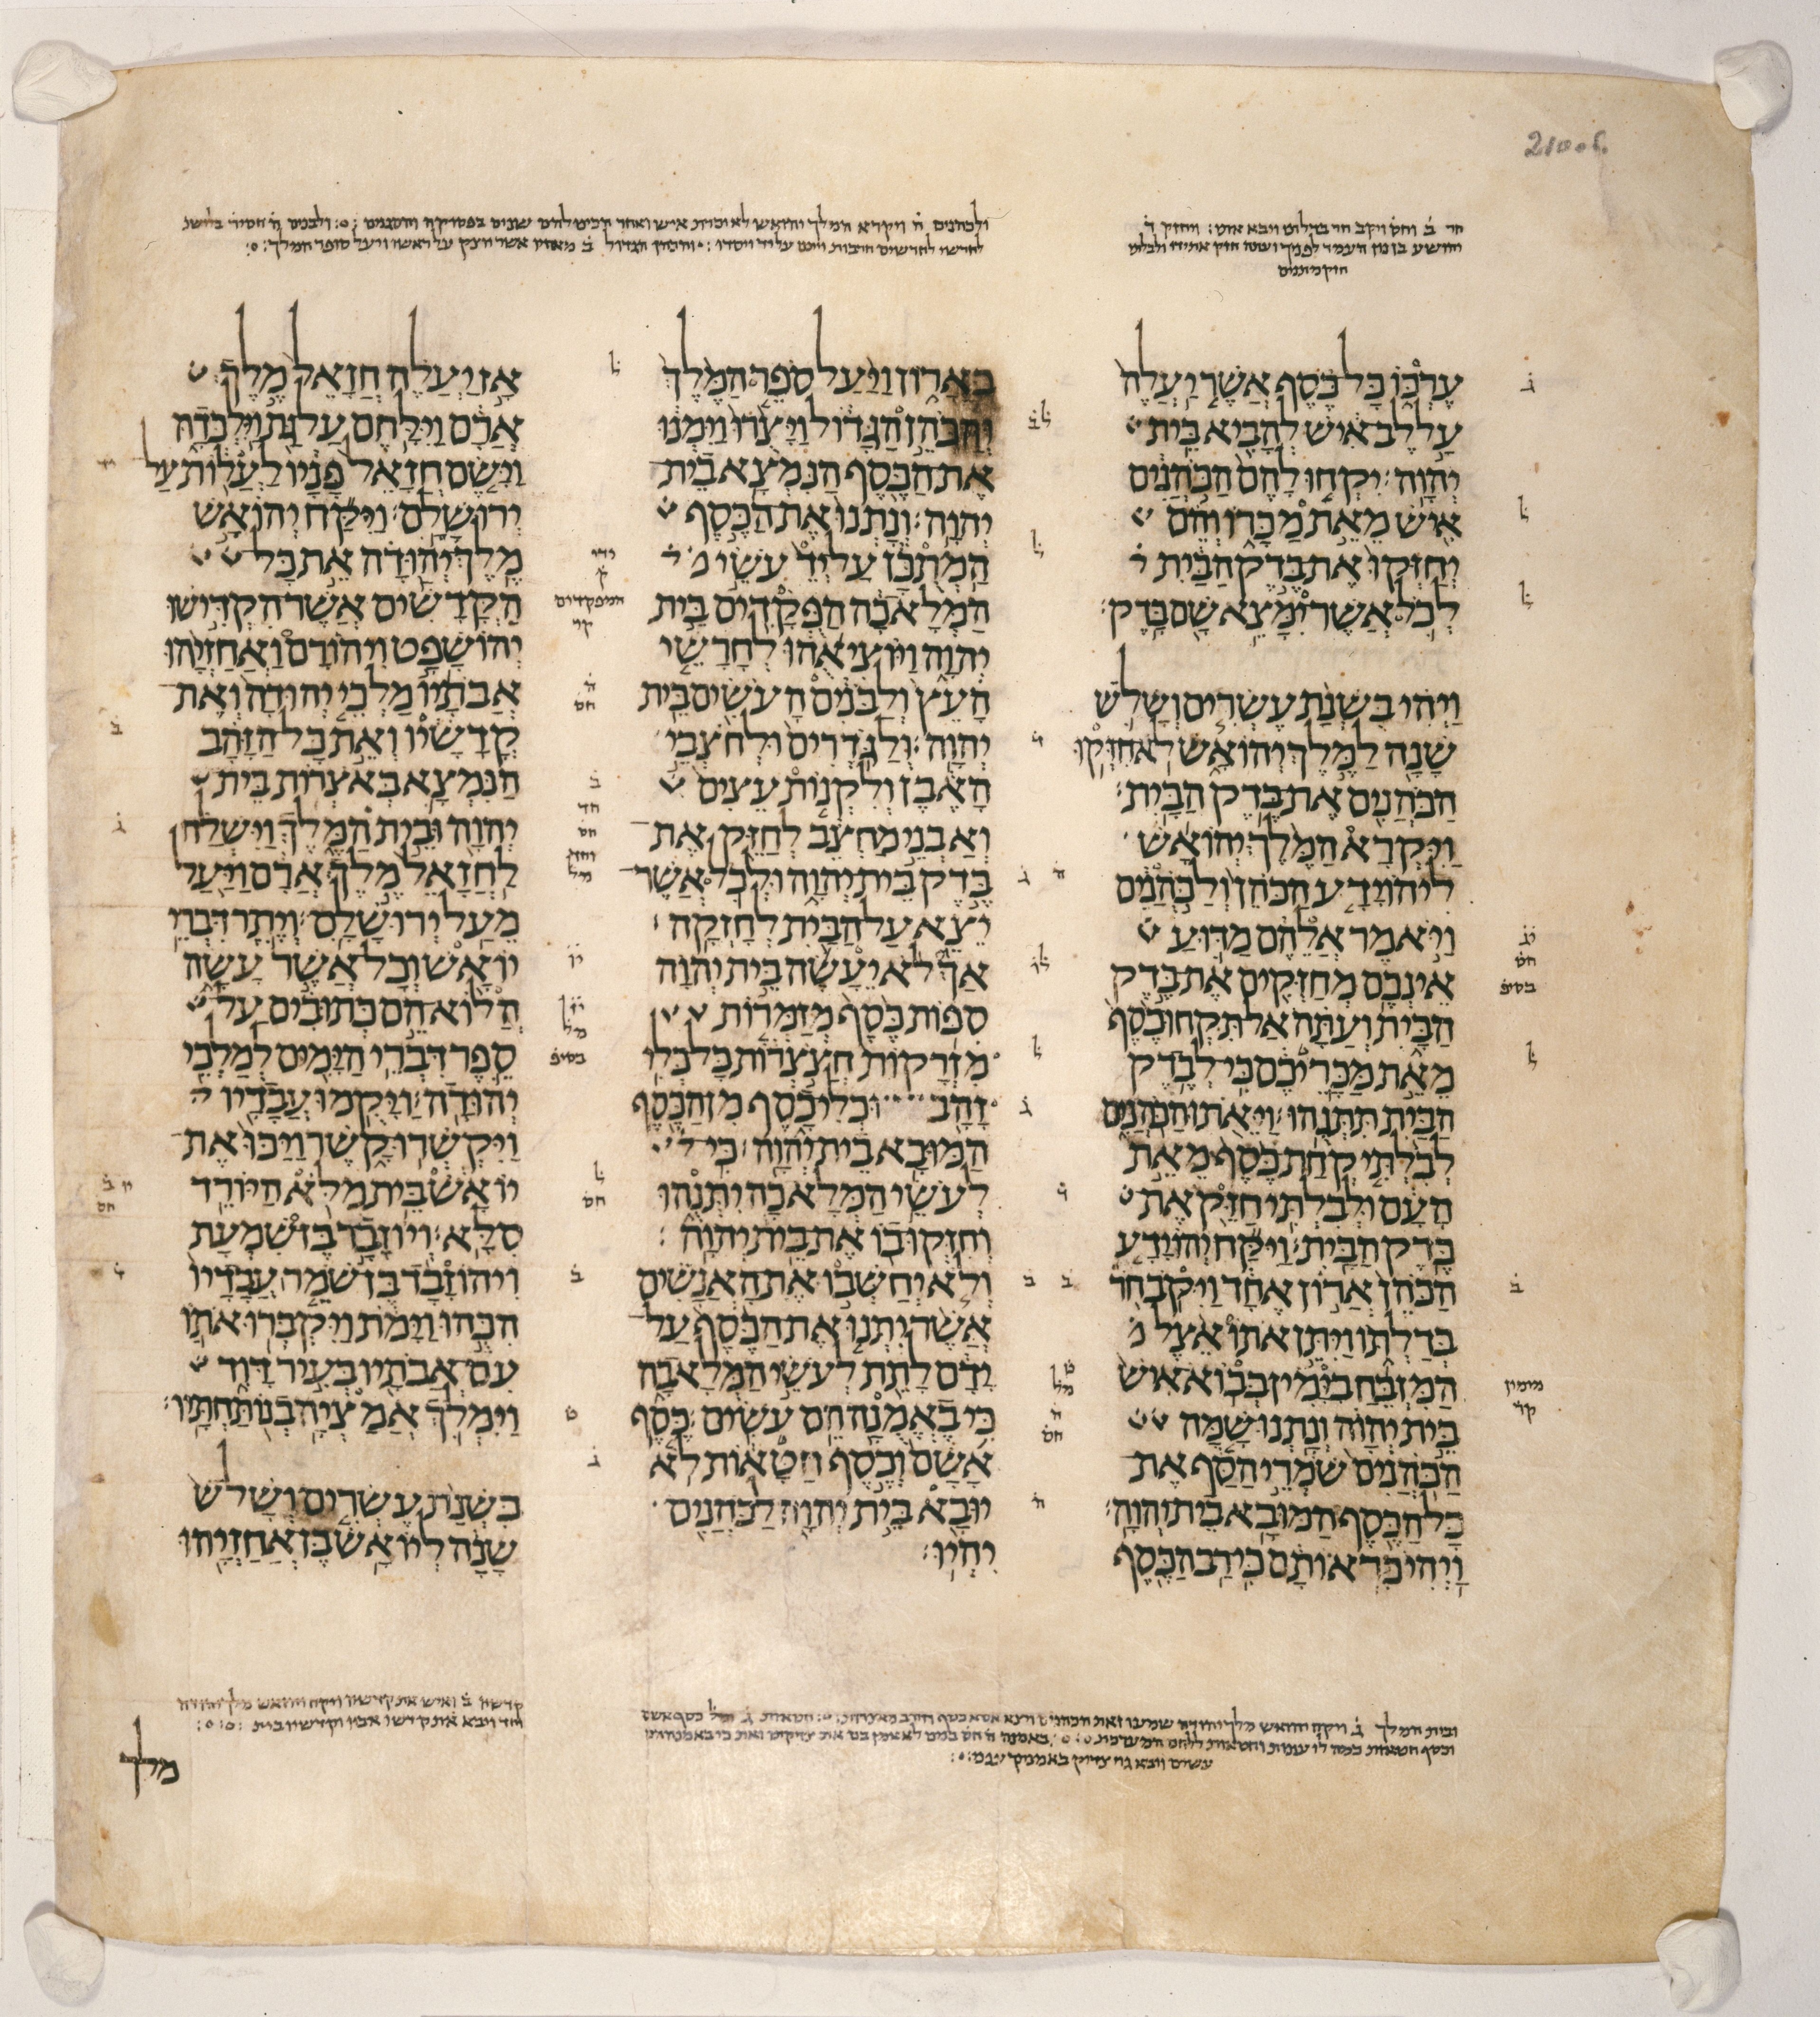 2100b.
חד ב וחס ויקב חר בדלתו ויבא אתו ויחזק ד
עֶרְכּוֹ כָּל כֶּסֶף אֲשֶׁר יַעֲלֶה
עַל לֶב אִישׁ לְהָבִיא בֵּית
יְהוָה׃ יִקְחוּ לָהֶם הַכֹּהֲנִים
אִישׁ מֵאֵת מַכָּרוֹ וְהֵם
יְחַזְּקוּ אֶת בֶּדֶק הַבַּיִת
לְכֹל אֲשֶׁר יִמָּצֵא שָׁם בָּדֶק׃
וַיְהִי בִּשְׁנַת עֶשְׂרִים וְשָׁלֹשׁ
שָׁנָה לַמֶּלֶךְ יְהוֹאָשׁ לֹא חִזְּקוּ
הַכֹּהֲנִים אֶת בֶּדֶק הַבָּיִת׃
וַיִּקְרָא הַמֶּלֶךְ יְהוֹאָשׁ
לִיהוֹיָדָע הַכֹּהֵן וְלַכֹּהֲנִים
וַיֹּאמֶר אֲלֵהֶם מַדּוּעַ
אֵינְכֶם מְחַזְּקִים אֶת בֶּדֶק
הַבָּיִת וְעַתָּה אַל תִּקְחוּ כֶסֶף
מֵאֵת מַכָּרֵיכֶם כִּי לְבֶדֶק
הַבַּיִת תִּתְּנֻהוּ׃ וַיֵּאֹתוּ הַכֹּהֲנִים
לְבִלְתִּי קְחַת כֶּסֶף מֵאֵת
הָעָם וּלְבִלְתִּי חַזֵּק אֶת
בֶּדֶק הַבָּיִת׃ וַיִּקַּח יְהוֹיָדָע
הַכֹּהֵן אֲרוֹן אֶחָד וַיִּקֹּב חֹר
בְּדַלְתּוֹ וַיִּתֵּן אֹתוֹ אֵצֶל
הַמִּזְבֵּחַ בִּיָּמִין בְּבוֹא אִישׁ
בֵּית יְהוָה וְנָתְנוּ שָׁמָּה
הַכֹּהֲנִים שֹׁמְרֵי הַסַּף אֶת
כָּל הַכֶּסֶף הַמּוּבָא בֵית יְהוָה׃
וַיְהִי כִּרְאוֹתָם כִּי רַב הַכֶּסֶף
בָּאָרוֹן וַיַּעַל סֹפֵר הַמֶּלֶךְ
וְהַכֹּהֵן הַגָּדוֹל וַיָּצֻרוּ וַיִּמְנוּ
אֶת הַכֶּסֶף הַנִּמְצָא בֵית
יְהוָה׃ וְנָתְנוּ אֶת הַכֶּסֶף
הַמְתֻכָּן עַל יְדֵ עֹשֵׂי
הַמְּלָאכָה הַפְּקֻדִים בֵּית
יְהוָה וַיּוֹצִיאֻהוּ לְחָרָשֵׁי
הָעֵץ וְלַבֹּנִים הָעֹשִׂים בֵּית
יְהוָה׃ וְלַגֹּדְרִים וּלְחֹצְבֵי
הָאֶבֶן וְלִקְנוֹת עֵצִים
וְאַבְנֵי מַחְצֵב לְחַזֵּק אֶת
בֶּדֶק בֵּית יְהוָה וּלְכֹל אֲשֶׁר
יֵצֵא עַל הַבַּיִת לְחָזְקָה׃
אַךְ לֹא יֵעָשֶׂה בֵּית יְהוָה
סִפּוֹת כֶּסֶף מְזַמְּרוֹת
מִזְרָקוֹת חֲצֹצְרוֹת כָּל כְּלִי
זָהָב וּכְלִי כָסֶף מִן הַכֶּסֶף
הַמּוּבָא בֵית יְהוָה׃ כִּי
לְעֹשֵׂי הַמְּלָאכָה יִתְּנֻהוּ
וְחִזְּקוּ בוֹ אֶת בֵּית יְהוָה׃
וְלֹא יְחַשְּׁבוּ אֶת הָאֲנָשִׁים
אֲשֶׁר יִתְּנוּ אֶת הַכֶּסֶף עַל
יָדָם לָתֵת לְעֹשֵׂי הַמְּלָאכָה
כִּי בֶאֱמֻנָה הֵם עֹשִׂים׃ כֶּסֶף
אָשָׁם וְכֶסֶף חַטָּאוֹת לֹא
יוּבָא בֵּית יְהוָה לַכֹּהֲנִים
יִהְיוּ׃
אָז יַעֲלֶה חֲזָאֵל מֶלֶךְ
אֲרָם וַיִּלָּחֶם עַל גַּת וַיִּלְכְּדָהּ
וַיָּשֶׂם חֲזָאֵל פָּנָיו לַעֲלוֹת עַל
יְרוּשָׁלִָם׃ וַיִּקַּח יְהוֹאָשׁ
מֶלֶךְ יְהוּדָה אֵת כָּל
הַקֳּדָשִׁים אֲשֶׁר הִקְדִּישׁוּ
יְהוֹשָׁפָט וִיהוֹרָם וַאֲחַזְיָהוּ
אֲבֹתָיו מַלְכֵי יְהוּדָה וְאֶת
קֳדָשָׁיו וְאֵת כָּל הַזָּהָב
הַנִּמְצָא בְּאֹצְרוֹת בֵּית
יְהוָה וּבֵית הַמֶּלֶךְ וַיִּשְׁלַח
לַחֲזָאֵל מֶלֶךְ אֲרָם וַיַּעַל
מֵעַל יְרוּשָׁלִָם׃ וְיֶתֶר דִּבְרֵי
יוֹאָשׁ וְכָל אֲשֶׁר עָשָׂה
הֲלוֹא הֵם כְּתוּבִים עַל
סֵפֶר דִּבְרֵי הַיָּמִים לְמַלְכֵי
יְהוּדָה׃ וַיָּקֻמוּ עֲבָדָיו
וַיִּקְשְׁרוּ קָשֶׁר וַיַּכּוּ אֶת
יוֹאָשׁ בֵּית מִלֹּא הַיּוֹרֵד
סִלָּא׃ וְיוֹזָבָד בֶּן שִׁמְעָת
וִיהוֹזָבָד בֶּן שֹׁמֵר עֲבָדָיו
הִכֻּהוּ וַיָּמֹת וַיִּקְבְּרוּ אֹתוֹ
עִם אֲבֹתָיו בְּעִיר דָּוִד
וַיִּמְלֹךְ אֲמַצְיָה בְנוֹ תַּחְתָּיו׃
בִּשְׁנַת עֶשְׂרִים וְשָׁלֹשׁ
שָׁנָה לְיוֹאָשׁ בֶּן אֲחַזְיָהוּ
מלך